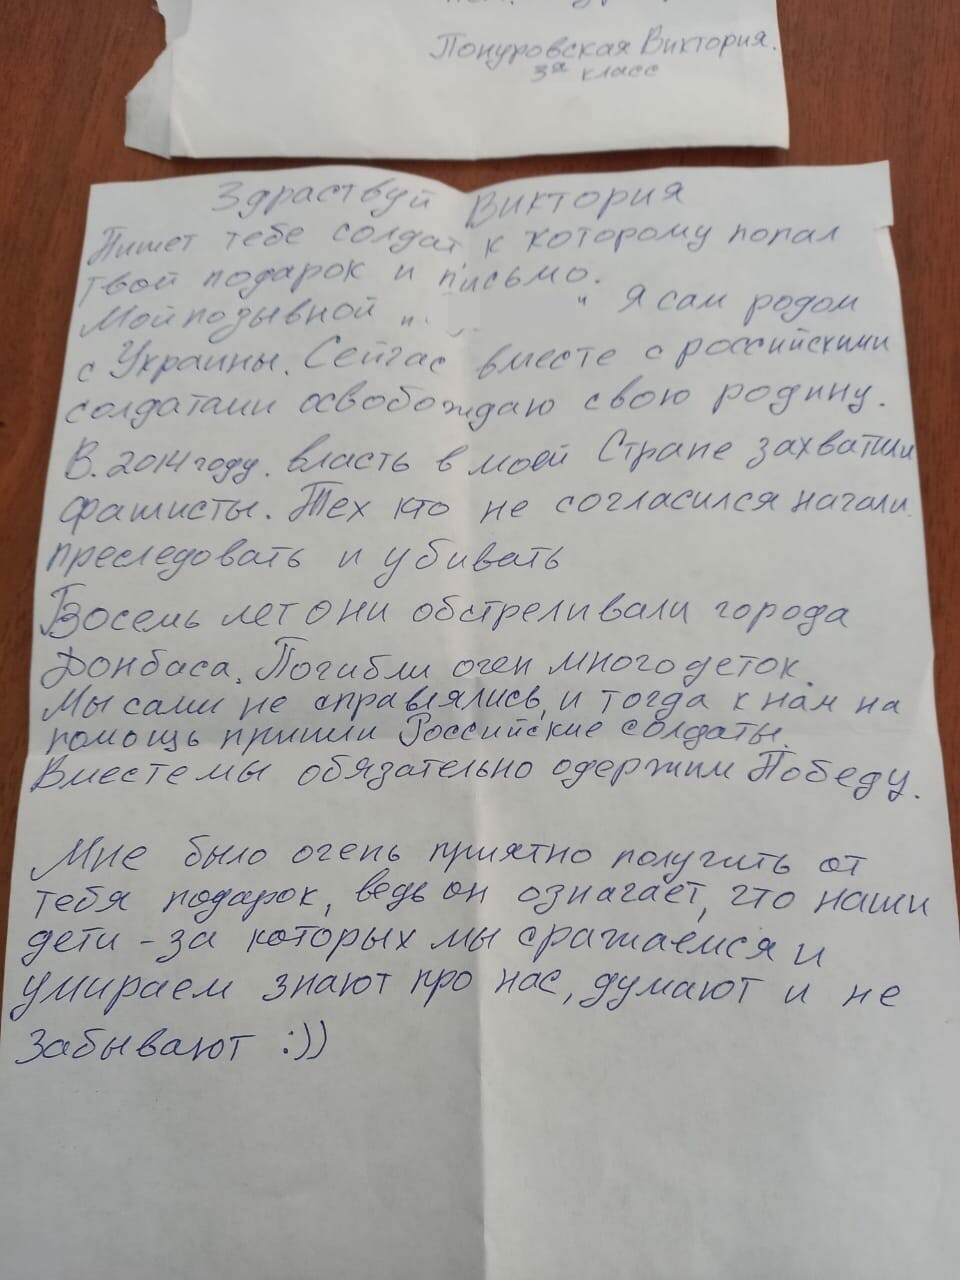 Понуровская Виктория.
3я класс
Здраствуй Виктория
Пишет тебе солдат к которому попал
твой подарок и письмо.
Мой позывной " " Я сам родом
с Украины. Сейчас вместе с российскими
солдатами освобождаю свою родину.
В. 2014 году. власть в моей Стране захватили
фашисты. Тех кто не согласился начали
преследовать и убивать
Восемь лет они обстреливали города
Донбаса. Погибли очен много деток.
Мы сами не справлялись, и тогда к нам на
помощь пришли Российские солдаты.
Вместе мы обязательно одержим Победу.
Мне было очень приятно получить от
тебя подарок, ведь он означает, что наши
дети - за которых мы сражаемся и
умираем знают про нас, думают и не
забывают :))